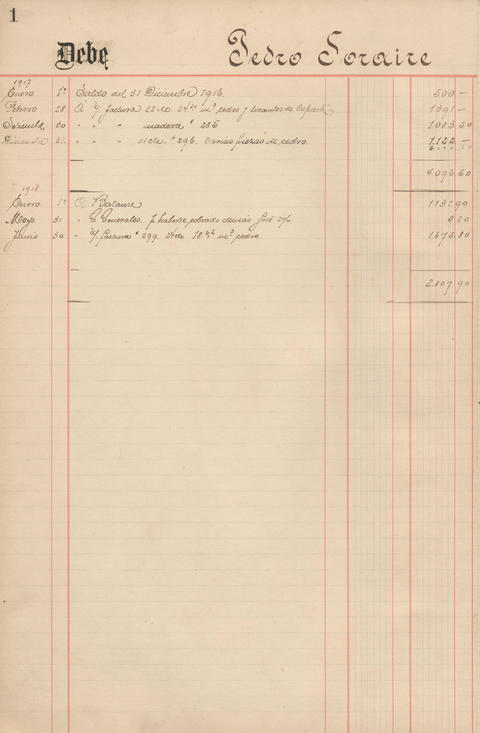 1
Debe Pedro Soraire
1917
Enero 1º Saldo del 31 Diciembre 1916. 500 —
Febrero 28 A n/ factura 22 de m³ cedro y tirantes de lapacho 1.391 —
30 " " " madera " 285 1.083.50
Diciembre 31. " " " 31 de. " 296. Varias piezas de cedro. 1.122 —
4.096.50
1918
Enero 1º A Balance 1131.90
Mayo 31 " G. Generales. p haberse cobrado demás fact 296 0.20
Junio 30 " n/ factura " 299. m³ cedro 1.675.80
2.807.90